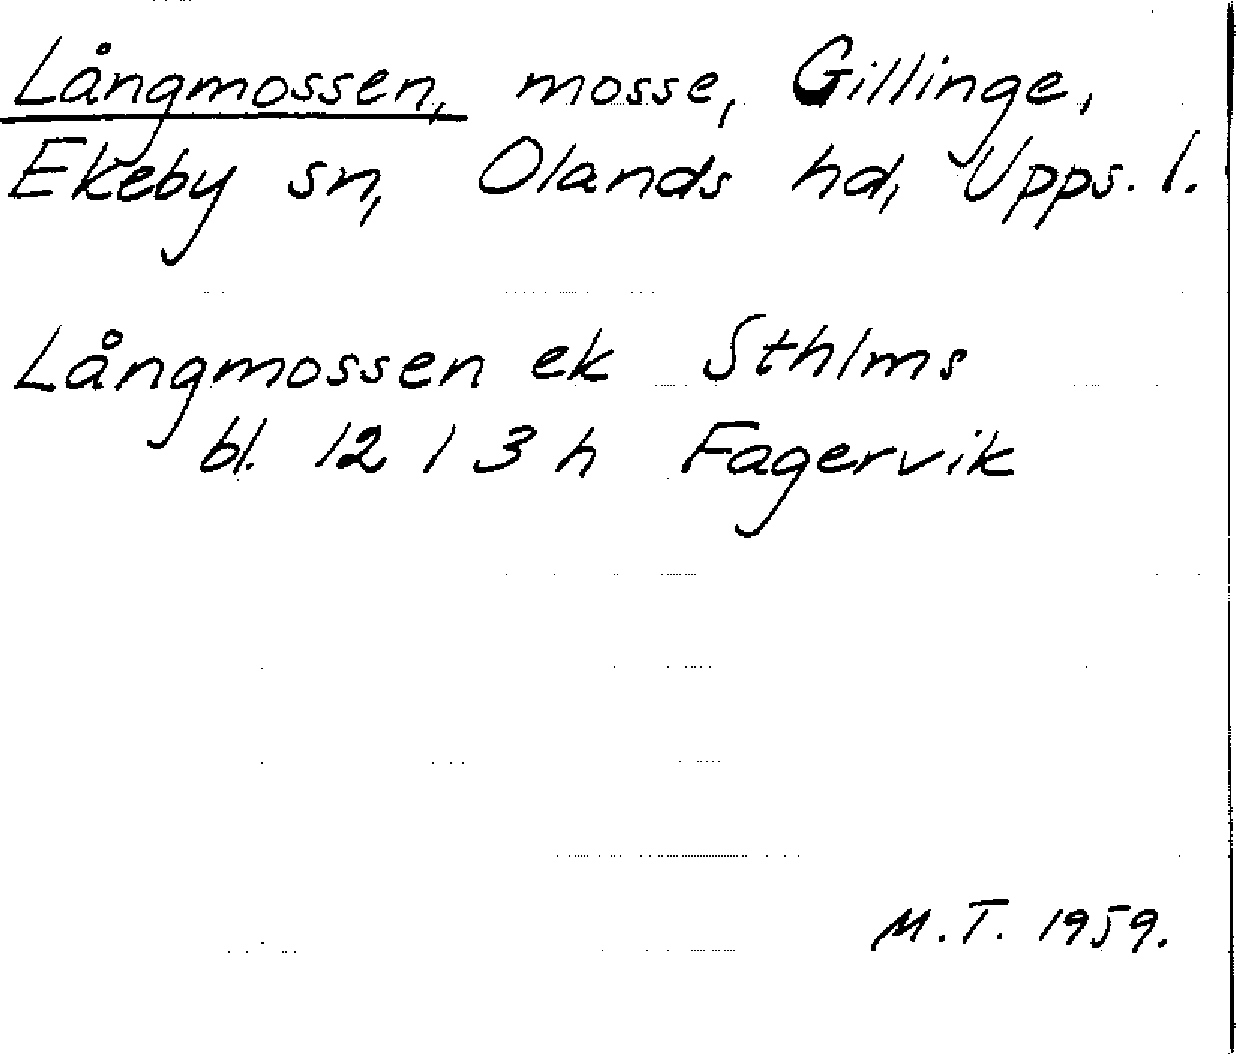 Långmossen, mosse, Gillinge,
Ekeby sn, Olands hd, Upps. l.
Långmossen ek Sthlms
bl. 12 I 3 h Fagervik
M.T. 1959.